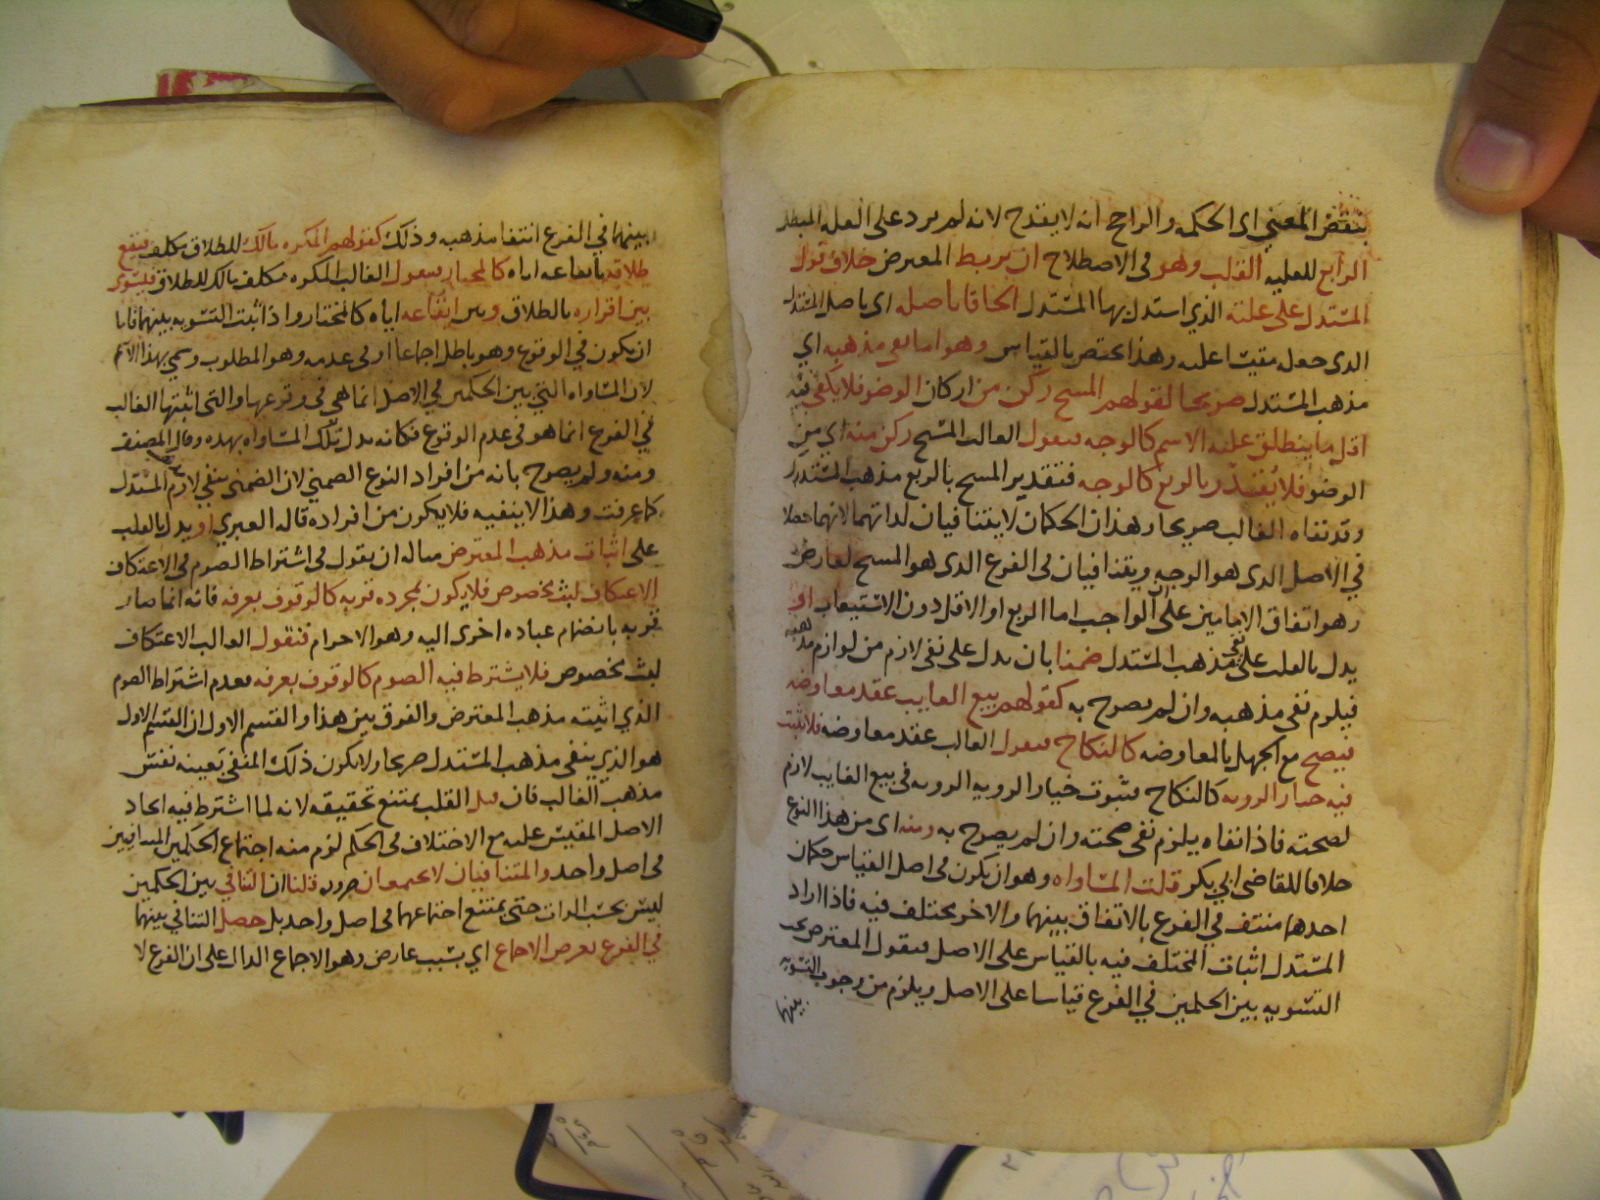 بنقض المعني اى الحكمه والراجح انه لا يقدح لانه لم يرد على العله المبطل
الرابع للعليه القلب وهو فى الاصطلاح ان يربط المعترض خلاف قول
المستدل على علته الذي استدل بها المستدل الحاقا باصله اى باصل المستدل
الذى جعله مقيسا عليه وهذا مختص بالقياس وهو اما نفى مذهبه اي
مذهب المستدل صريحا كقولهم المسح ركن من اركان الوضو فلا يكفى فيه
اقل ما ينطلق عليه الاسم كالوجه فيقول القالب المسح ركن منه اي من
الوضو فلا يقدر بالربع كالوجه فتقدير المسح بالربع مذهب المستدل
وقد نفاه القالب صريحا وهذان الحكمان لا يتنافيان لذاتهما لانهما حصلا
في الاصل الذى هو الوجه ويتنافيان فى الفرع الذى هو المسح لعارض
وهو اتفاق الامامين على ان الواجب اما الربع او الاقل دون الاستيعاب او
يدل بالقلب على نفى مذهب المستدل ضمنا بان يدل على نفى لازم من لوازم مذهبه
فيلزم نفى مذهبه وان لم يصرح به كقولهم بيع الغايب عقد معاوضه
فيصح مع الجهل بالمعاوضه كالنكاح فيقول القالب عقد معاوضه فلا يثبت
فيه خيار الرويه كالنكاح فثبوت خيار الرويه الرويه فى بيع الغايب لازم
لصحته فاذا نفاه يلزم نفى صحته وان لم يصرح به ومنه اى من هذا النوع
خلافا للقاضى ابي بكر قلت المساواه وهو ان يكون فى اصل القياس حكمان
احدهما منتف في الفرع بالاتفاق بينهما والاخر مختلف فيه فاذا اراد
المستدل اثبات المختلف فيه بالقياس على الاصل فيقول المعترض يجب
التسويه بين الحكمين في الفرع قياسا على الاصل ويلزم من وجوب التسويه
بينهما
بينهما في الفرع انتفا مذهبه وذلك كقولهم المكره مالك للطلاق مكلف فيقع
طلاقه بايقاعه اياه كالمختار فيقول القالب المكره مكلف مالك للطلاق فيسوى
بين اقراره بالطلاق وبين ايقاعه اياه كالمختار واذا ثبت التسويه بينهما فاما
ان يكون في الوقوع وهو باطل اجماعا او فى عدمه وهو المطلوب وسمي بهذا الاسم
لان المساواه التي بين الحكمين في الاصل انما هي فى وقوعها والتى اثبتها القالب
في الفرع انما هو فى عدم الوقوع فكانه بدل تلك المساواه بهذه وقال المصنف
ومنه ولم يصرح بانه من افراد النوع الضمني لان الضمنى ينفي لازم المستدل
كما عرفت وهذا لا ينفيه فلا يكون من افراده قاله العبري او يدل بالقلب
على اثبات مذهب المعترض مثاله ان يقول فى اشتراط الصوم فى الاعتكاف
الاعتكاف لبث مخصوص فلا يكون بمجرده قربه كالوقوف بعرفه فانه انما صار
قربه بانضمام عباده اخرى اليه وهو الاحرام فنقول القالب الاعتكاف
لبث مخصوص فلا يشترط فيه الصوم كالوقوف بعرفه فعدم اشتراط الصوم
الذي اثبته مذهب المعترض والفرق بين هذا والقسم الاول ان القسم الاول
هو الذي ينفى مذهب المستدل صريحا ولا يكون ذلك المنفي بعينه نفس
مذهب القالب فان قيل القلب يمتنع تحقيقه لانه لما اشترط فيه اتحاد
الاصل المقيس عليه مع الاختلاف فى الحكم لزم منه اجتماع الحكمين المتنافيين
فى اصل واحد والمتنافيان لا يجتمعان ضروره قلنا ان التنافي بين الحكمين
ليس بحسب الذات حتى يمتنع اجتماعهما فى اصل واحد بل حصل التنافي بينهما
في الفرع بعرض الاجماع اي بسبب عارض وهو الاجماع الدال على ان الفرع لا